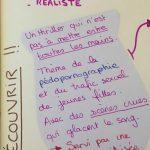 RÉALISTE
Un thriller qui n'est
pas à mettre entre
toutes les mains.
Thème de la
pédopornographie
et du trafic sexuel
de jeunes filles.
Avec des scènes crues
qui glacent le sang.
Servi par une
DÉCOUVRIR !!